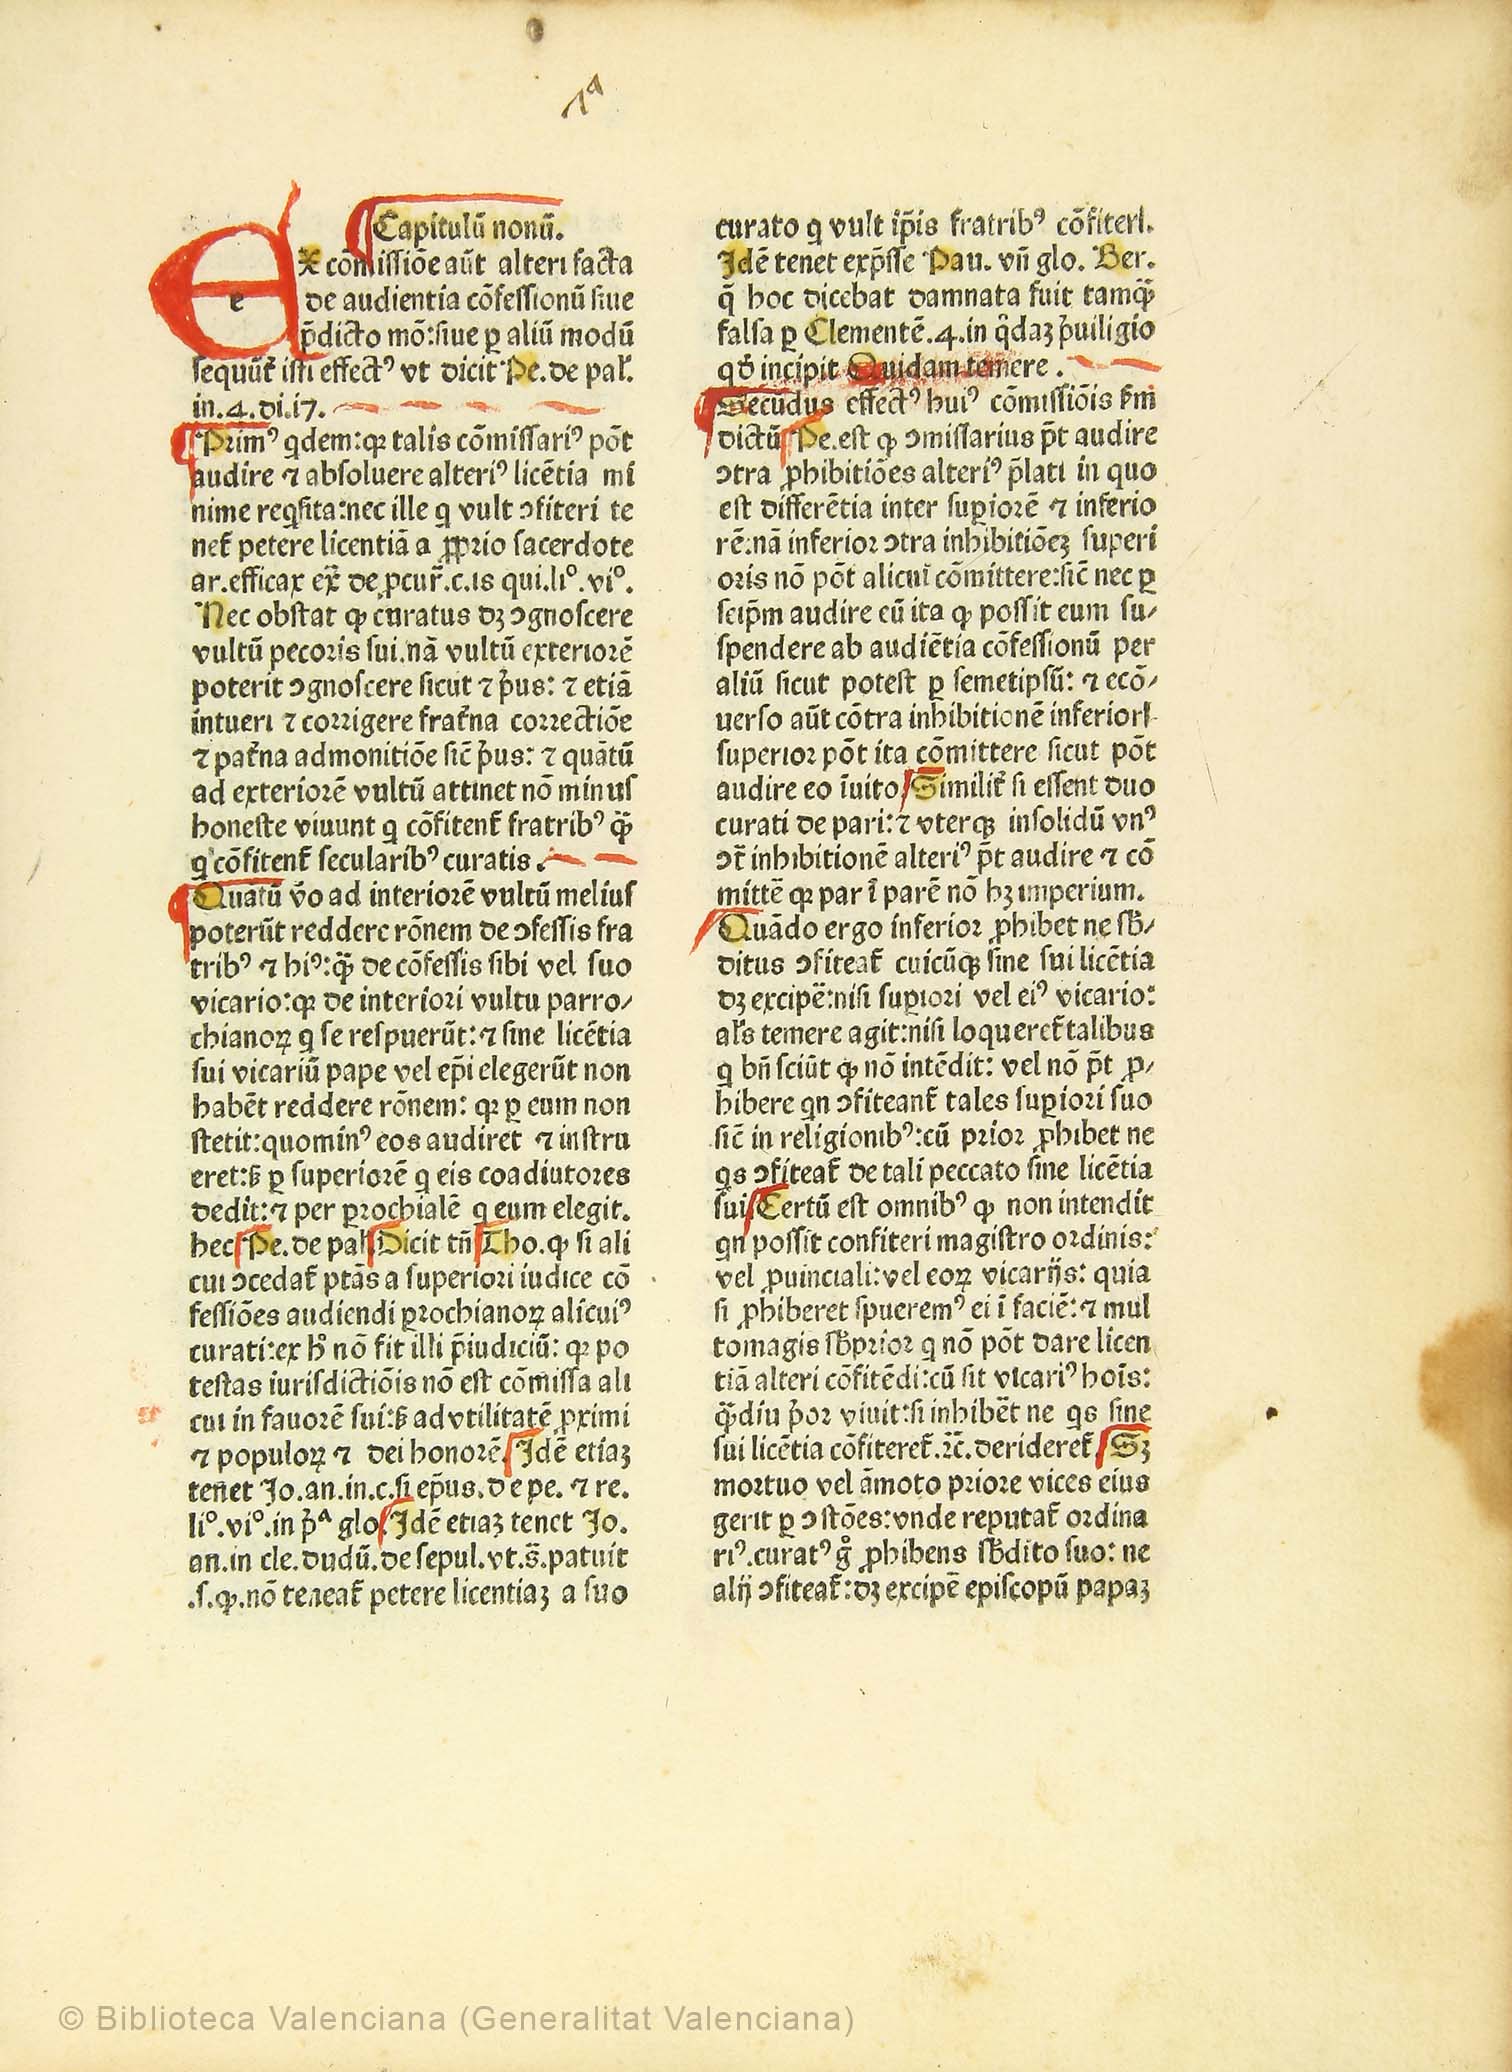 Capitulū nonū.
Ex cōmissiōe aūt alteri facta
de audientia cōfessionū siue
p̄dicto mō: siue ꝑ aliū modū
sequūt̄ isti effectꝰ vt dicit Pe. de pal̄.
in .4. di. 17.
Primꝰ qdem: qꝛ talis cōmissariꝰ pōt
audire ⁊ absoluere alteriꝰ licētia mi
nime reqsita: nec ille q vult ↄfiteri te
net̄ petere licentiā a ꝓprio sacerdote
ar. efficax ex̄ de ꝓcur̄. c. is qui. liº. viº.
Nec obstat ꝙ curatus dꝫ ↄgnoscere
vultū pecoris sui. nā vultū exteriorē
poterit ↄgnoscere sicut ⁊ p̄us: ⁊ etiā
intueri ⁊ corrigere frat̄na correctiōe
⁊ pat̄na admonitiōe sic̄ p̄us: ⁊ quātū
ad exteriorē vultū attinet nō minus
honeste viuunt q cōfitent̄ fratribꝰ q̄̄
q cōfitent̄ secularibꝰ curatis.
Quātū v̄o ad interiorē vultū melius
poterūt reddere rōnem de ↄfessis fra
tribꝰ ⁊ hiꝰ: q̄̄ de cōfessis sibi vel suo
vicario: qꝛ de interiori vultu parro/
chianoꝝ q se respuerūt: ⁊ sine licētia
sui vicariū pape vel ep̄i elegerūt non
habēt reddere rōnem: qꝛ ꝑ eum non
stetit: quominꝰ eos audiret ⁊ instru
eret: sꝫ ꝑ superiorē q eis coadiutores
dedit: ⁊ per ꝑrochialē q eum elegit.
hec Pe. de pal̄. Dicit tn̄ Tho. ꝙ si ali
cui ↄcedat̄ ptās a superiori iudice cō
fessiōes audiendi ꝑrochianoꝝ alicuiꝰ
curati: ex hͦ nō fit illi p̄iudiciū: qꝛ po
testas iurisdictiōis nō est cōmissa ali
cui in fauorē sui: sꝫ ad vtilitatē ꝓximi
⁊ populoꝝ ⁊ dei honorē. Idē etiaꝫ
tenet Jo. an. in. c. si ep̄us. de pe. ⁊ re.
liº. viº. in p̄ª glo. Idē etiaꝫ tenet Jo.
an. in cle. dudū. de sepul. vt. s̄. patuit
.s. ꝙ. nō teneat̄ petere licentiaꝫ a suo
curato q vult ip̄is fratribꝰ cōfiteri.
Idē tenet exp̄sse Pau. vn̄ glo. Ber.
q̄ hoc dicebat damnata fuit tamq̄̄
falsa ꝑ Clementē .4. in qͦdaꝫ p̄uiligio
qd̄ incipit Quidam temere.
Secūdus effectꝰ huiꝰ cōmissiōis s̄m
dictū Pe. est ꝙ ↄmissarius p̄t audire
ↄtra ꝓhibitiōes alteriꝰ p̄lati in quo
est differētia inter suꝑiorē ⁊ inferio
rē. nā inferior ↄtra inhibitiōeꝫ superi
oris nō pōt alicui cōmittere: sic̄ nec ꝑ
seip̄m audire cū ita ꝙ possit eum su/
spendere ab audiētia cōfessionū per
aliū sicut potest ꝑ semetipsū: ⁊ ecō/
uerso aūt cōtra inhibitionē inferiori
superior pōt ita cōmittere sicut pōt
audire eo īuito. Similit̄ si essent duo
curati de pari: ⁊ vterqꝫ insolidū vnꝰ
ↄt̄ inhibitionē alteriꝰ p̄t audire ⁊ cō
mittē qꝛ par ī parē nō hꝫ imperium.
Quādo ergo inferior ꝓhibet ne sb̄/
ditus ↄfiteat̄ cuicūqꝫ sine sui licētia
dꝫ excipē: nisi suꝑiori vel eiꝰ vicario:
al̄s temere agit: nisi loqueret̄ talibus
q bn̄ sciūt ꝙ nō intēdit: vel nō p̄t ꝓ/
hibere qn ↄfiteant̄ tales suꝑiori suo
sic̄ in religionibꝰ: cū prior ꝓhibet ne
qs ↄfiteat̄ de tali peccato sine licētia
sui. Certū est omnibꝰ ꝙ non intendit
qn possit confiteri magistro ordinis:
vel ꝓuinciali: vel eoꝝ vicarijs: quia
si ꝓhiberet spueremꝰ ei ī faciē: ⁊ mul
tomagis sb̄prior q nō pōt dare licen
tiā alteri cōfitēdi: cū sit vicariꝰ hoīs:
q̄̄diu p̄or viuit: si inhibēt ne qs sine
sui licētia cōfiteret̄. ⁊c̄. derideret̄. Sꝫ
mortuo vel āmoto priore vices eius
gerit ꝑ ↄstōes: vnde reputat̄ ordina
riꝰ. curatꝰ gͦ ꝓhibens sb̄dito suo: ne
alij ↄfiteat̄: dꝫ excipē episcopū papaꝫ
© Biblioteca Valenciana (Generalitat Valenciana)